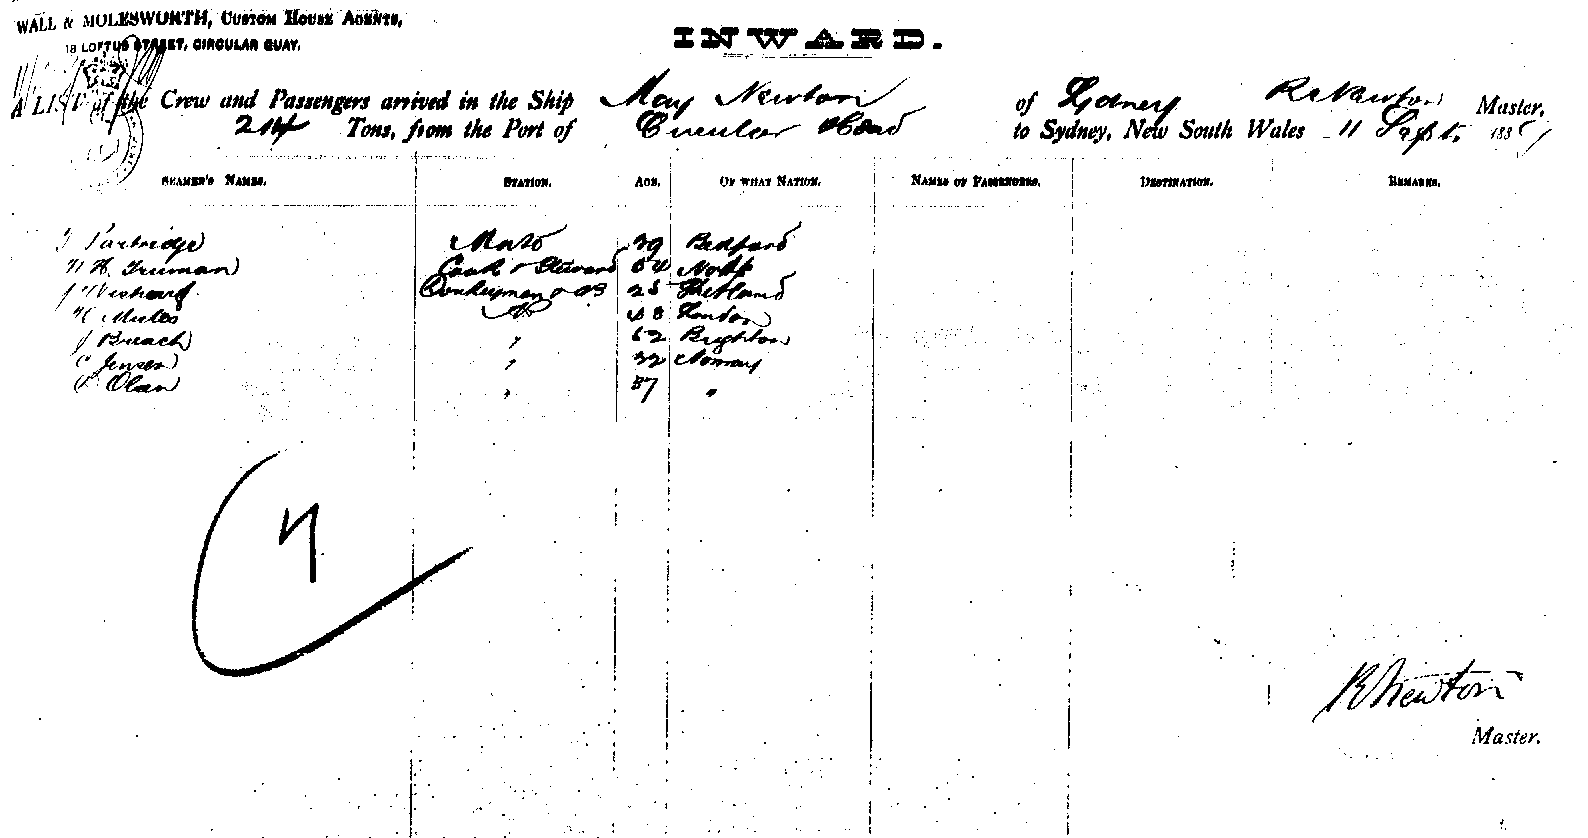 WALL & MOLESWORTH, CUSTOM HOUSE AGENTS,
18 LOFTUS STREET, CIRCULAR QUAY.
INWARD.
A LIST of the Crew and Passengers arrived in the Ship May Newton of Sydney R Newton Master,
214 Tons, from the Port of Circular Head to Sydney, New South Wales 11 Sept. 188
SEAMER'S NAMES. STATION. AGE. OF WHAT NATION. NAMES OF PASSENGERS. DESTINATION. REMARKS.
Partridge Mate 39 Bedford
H. Truman Cook & Steward 54 Notts
Wishart Donkeyman & AB 25 Shetland
Miles AB 48 London
J Breach " 52 Brighton
C Jensen " 32 Norway
Olan " 37 "
7
R Newton
Master.